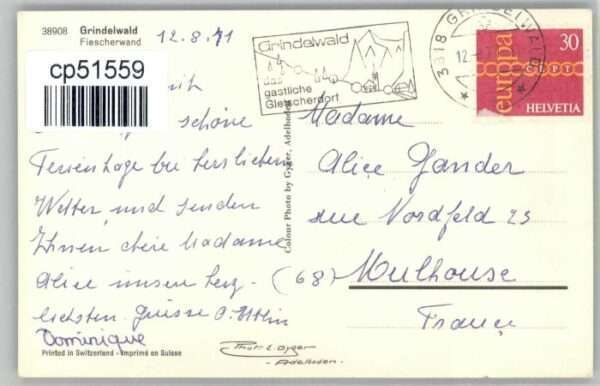 38908 Grindelwald
Fiescherwand
12.8.71
cp51559
schöne
Ferientage bei herrlichem
Wetter und senden
Ihnen chère Madame
Alice unsere herz-
lichsten Grüsse
Dominique
Printed in Switzerland - Imprimé en Suisse
Colour Photo by Gyger, Adelboden
Phot. E. Gyger
Adelboden
Grindelwald
das
gastliche
Gletscherdorf
3818 GRINDELWALD
12
europa
CEPT
30
HELVETIA
Madame
Alice Gander
rue Nordfeld 25
(68) Mulhouse
France